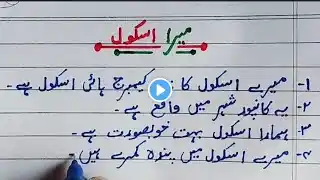 میرا اسکول
۱- میرے اسکول کا نام کیمبرج ہائی اسکول ہے۔
۲- یہ کانپور شہر میں واقع ہے۔
۳- ہمارا اسکول بہت خوبصورت ہے۔
۴- میرے اسکول میں پندرہ کمرے ہیں۔